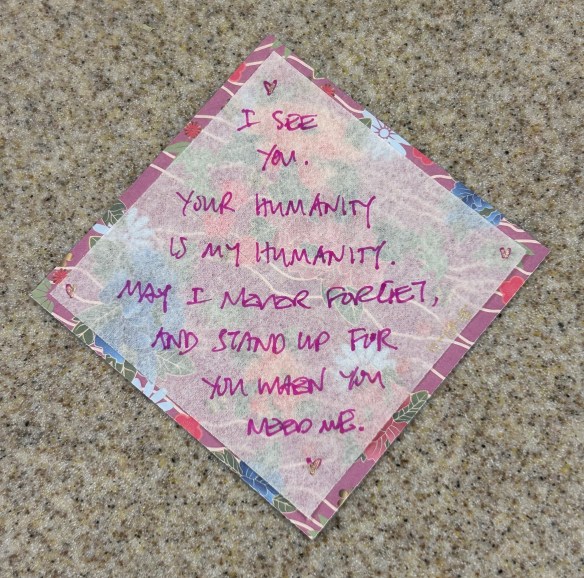 I SEE
YOU.
YOUR HUMANITY
IS MY HUMANITY.
MAY I NEVER FORGET,
AND STAND UP FOR
YOU WHEN YOU
NEED ME.